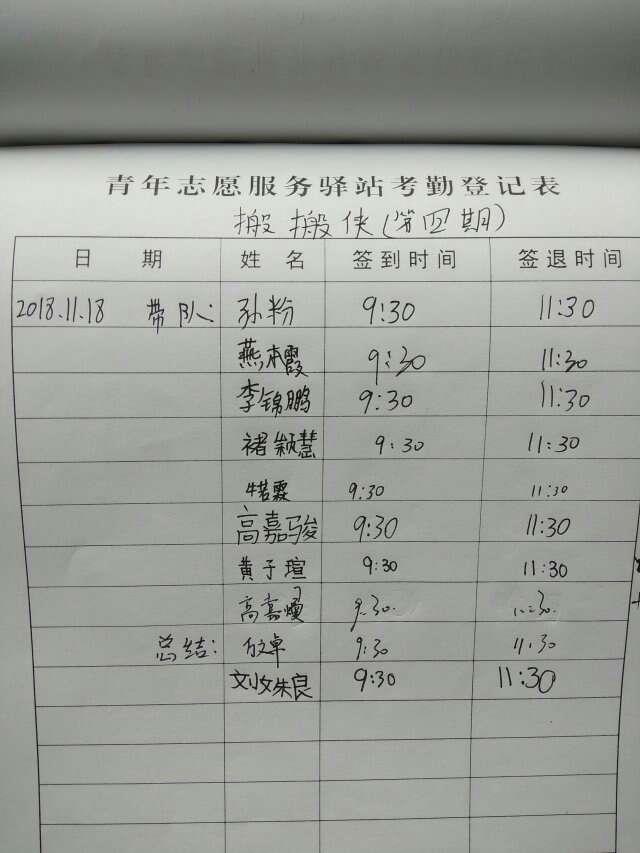 青年志愿服务驿站考勤登记表
搬搬侠(第四期)
日 期 姓 名 签到时间 签退时间
2018.11.18 带队: 孙粉 9:30 11:30
燕本霞 9:30 11:30
李锦鹏 9:30 11:30
褚颖慧 9:30 11:30
牛若霖 9:30 11:30
高嘉骏 9:30 11:30
黄子瑄 9:30 11:30
高嘉 9:30. 11:30.
总结: 9:30 11:30
9:30 11:30